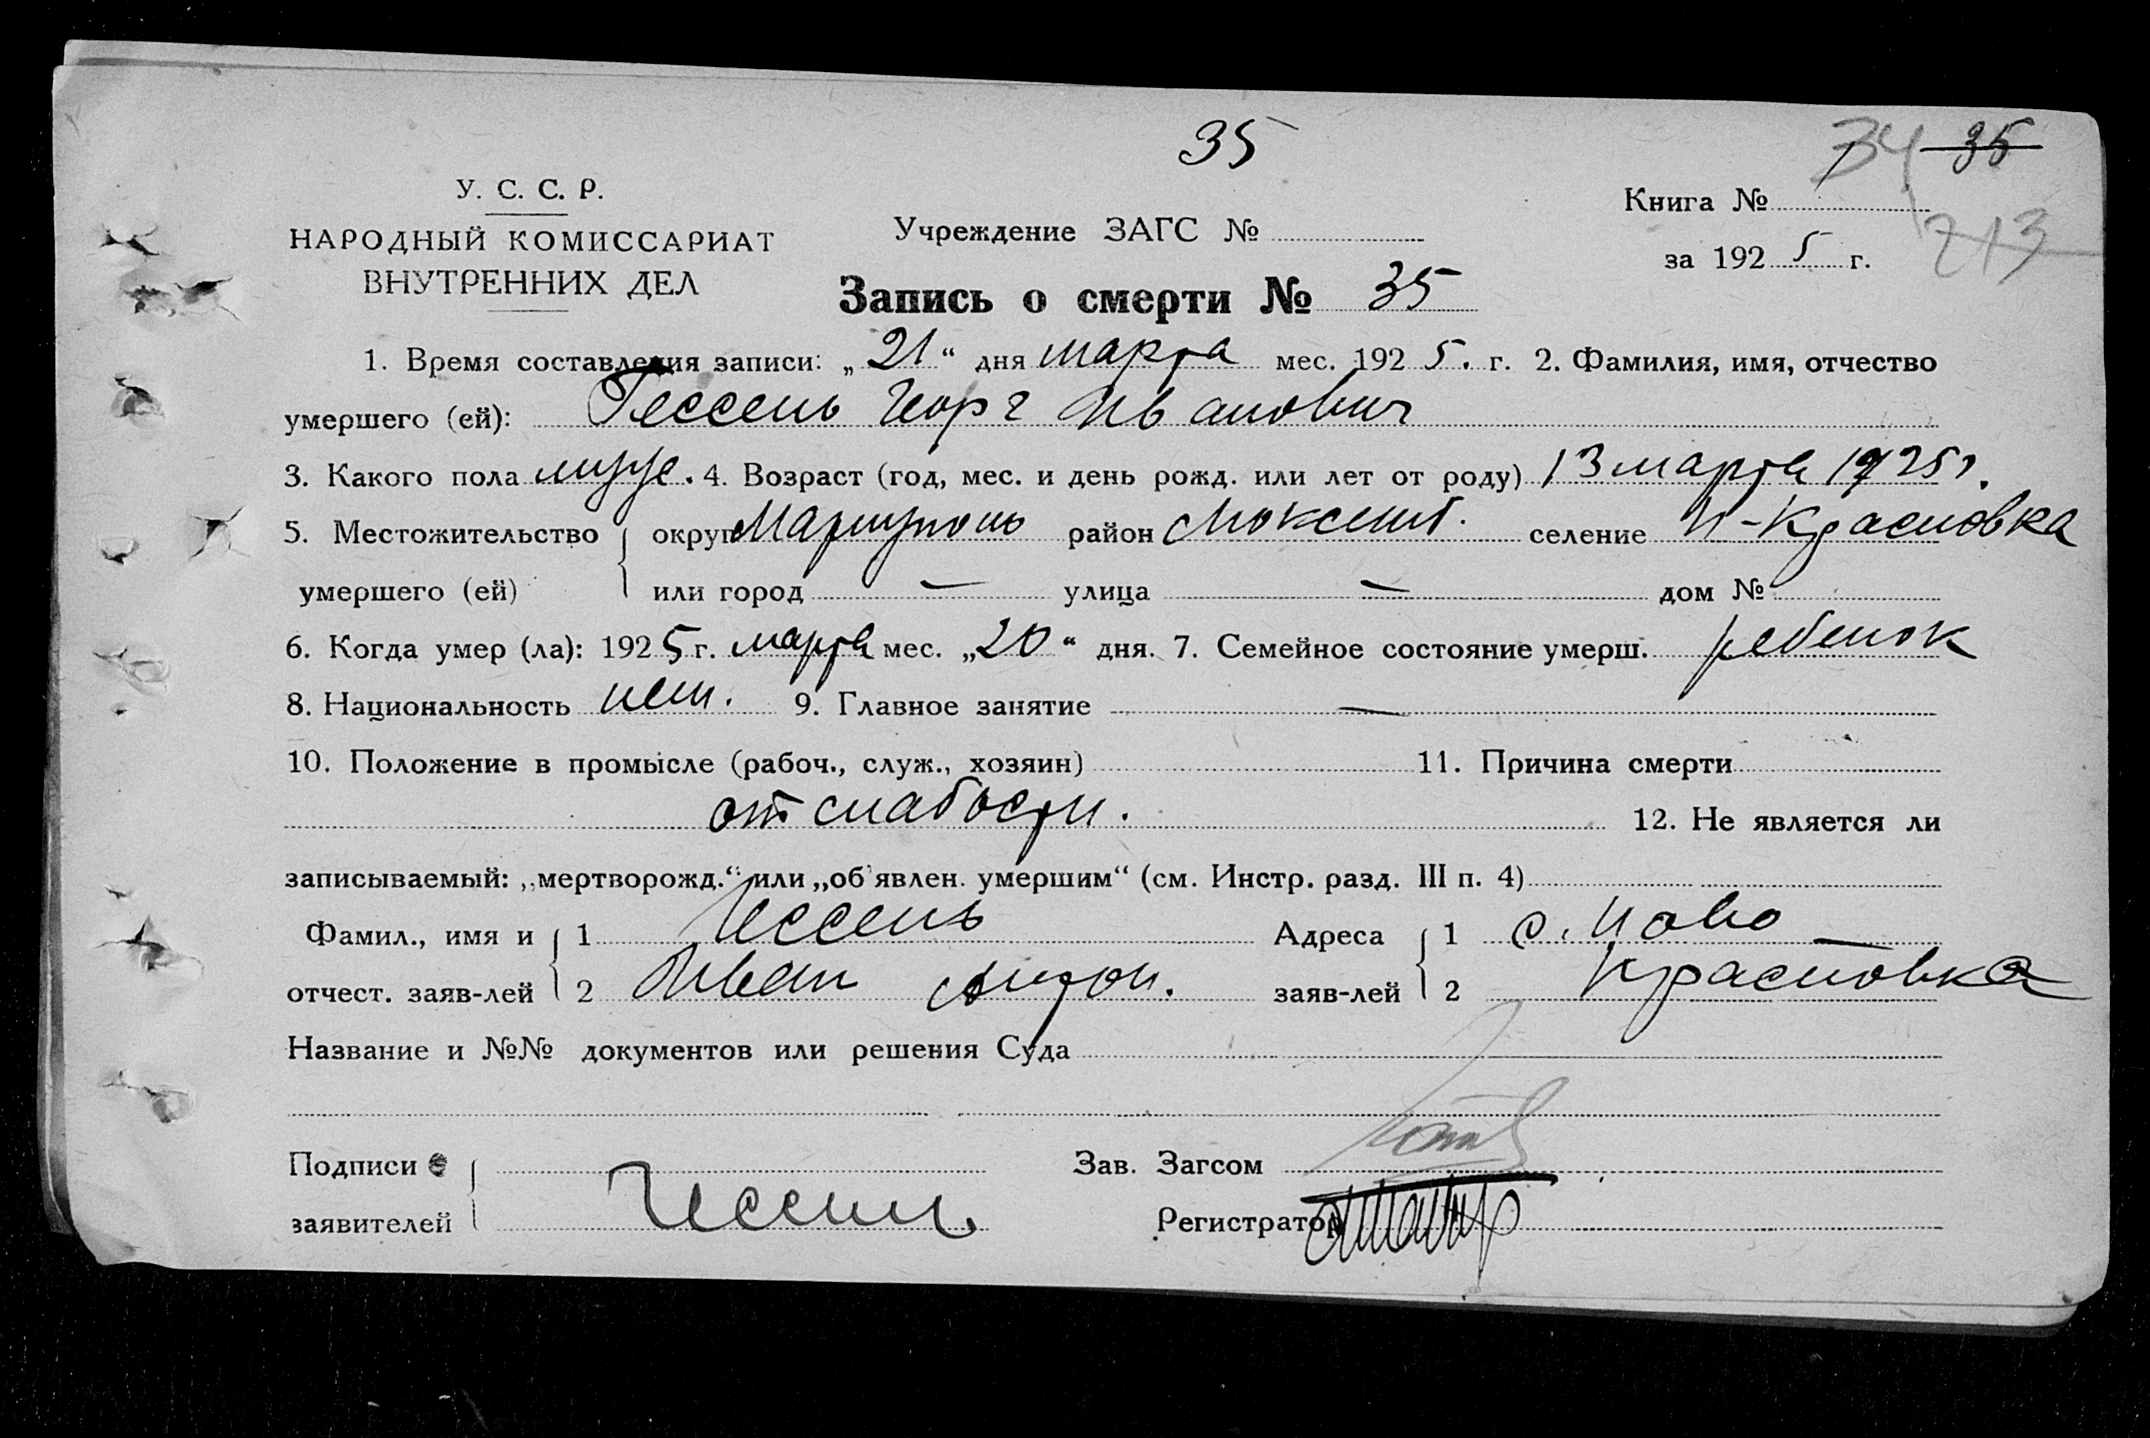 35
34 35
У. С. С. Р.
Книга №
НАРОДНЫЙ КОМИССАРИАТ Учреждение ЗАГС №
213
ВНУТРЕННИХ ДЕЛ
за 1925 г.
Запись о смерти № 35
1. Время составления записи: „21“ дня марта мес. 1925. г. 2. Фамилия, имя, отчество
умершего (ей): Гессень Георг Иванович
3. Какого пола муж. 4. Возраст (год, мес. и день рожд. или лет от роду) 13 марта 1925 г.
5. Местожительство округ Мариуполь район селение Н-Красновка
умершего (ей) или город — улица — дом №
6. Когда умер (ла): 1925 г. марта мес. „20“ дня. 7. Семейное состояние умерш. ребенок
8. Национальность нем. 9. Главное занятие —
10. Положение в промысле (рабоч., служ., хозяин) 11. Причина смерти
от слабости. 12. Не является ли
записываемый: „мертворожд.“ или „об'явлен. умершим“ (см. Инстр. разд. III п. 4)
Фамил., имя и 1 Гессень Адреса 1 с. Ново —
отчест. заяв-лей 2 Иван Антон. заяв-лей 2 Красновка
Название и №№ документов или решения Суда
Подписи Зав. Загсом
заявителей Гессень Регистратор